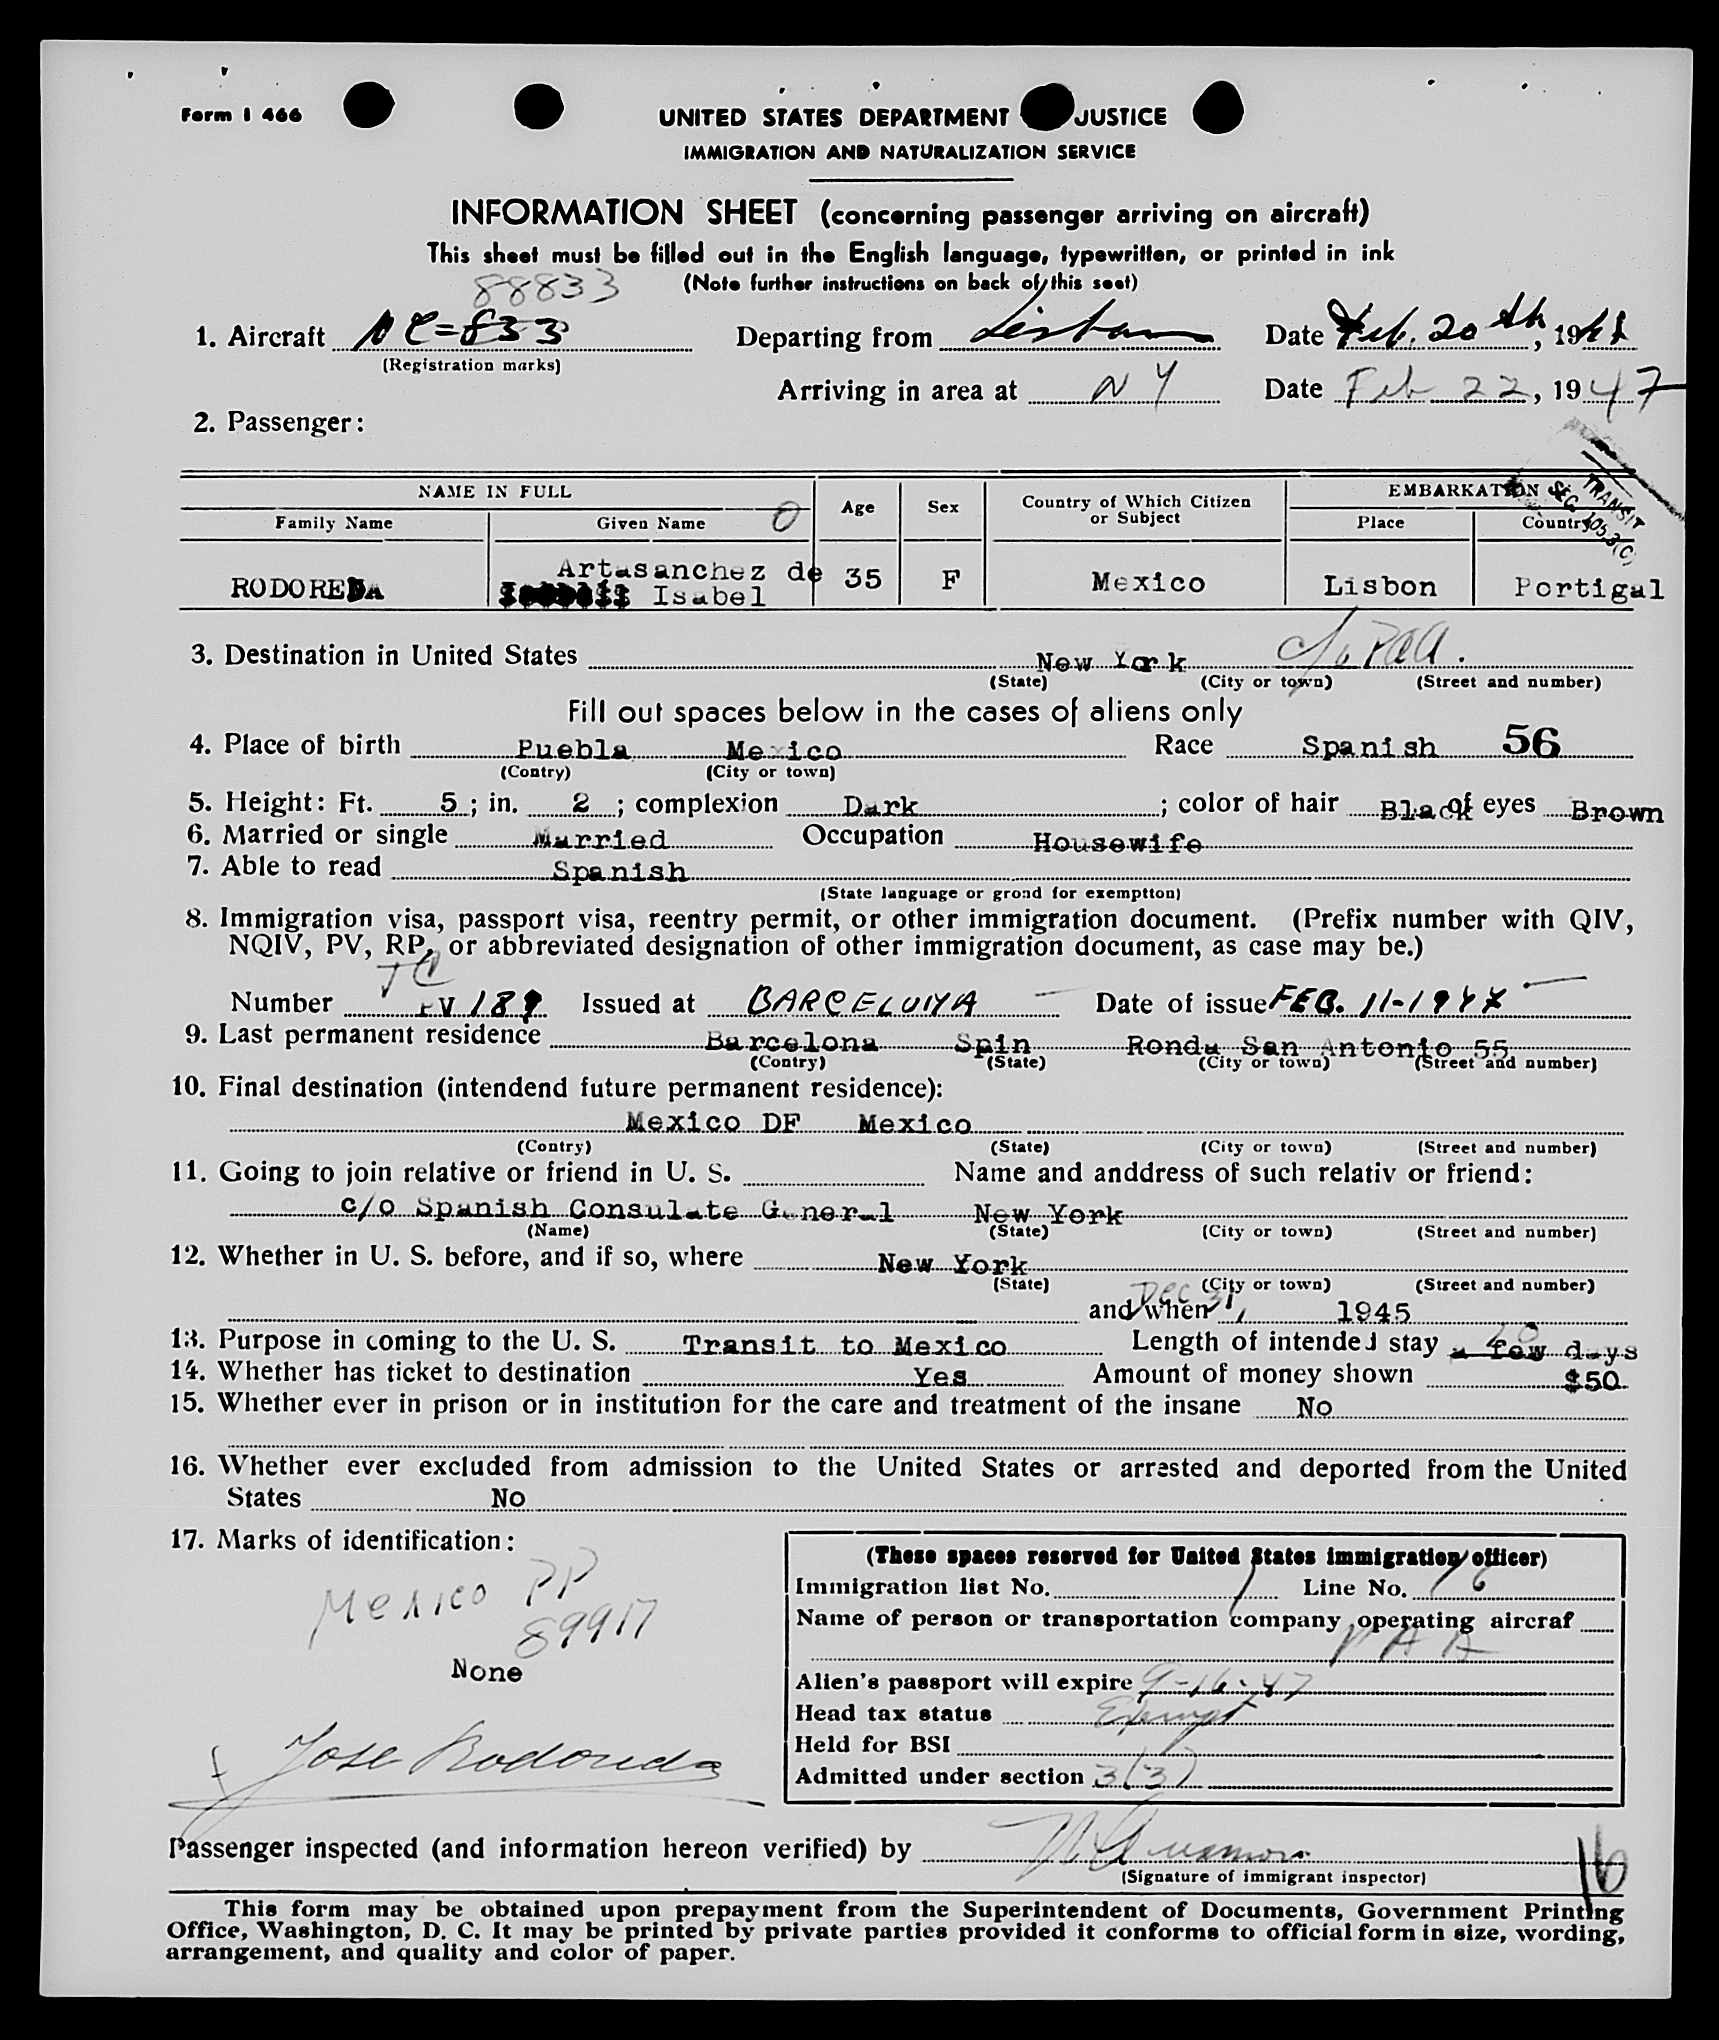 Form I 466
UNITED STATES DEPARTMENT JUSTICE
IMMIGRATION AND NATURALIZATION SERVICE
INFORMATION SHEET (concerning passenger arriving on aircraft)
This sheet must be filled out in the English language, typewritten, or printed in ink
(Note further instructions on back of this seet)
88833
1. Aircraft NC=833 Departing from Lisbon Date Feb. 20th, 19
(Registration marks)
Arriving in area at NY Date Feb 22, 1947
2. Passenger:
NAME IN FULL Age Sex Country of Which Citizen or Subject EMBARKATION
Family Name Given Name 0 Place Country
TRANSIT
SEC. 105.3(C)
Artasanchez de
RODOREDA Isabel 35 F Mexico Lisbon Portigal
3. Destination in United States New York c/o PAA.
(State) (City or town) (Street and number)
Fill out spaces below in the cases of aliens only
4. Place of birth Puebla Mexico Race Spanish 56
(Contry) (City or town)
5. Height: Ft. 5; in. 2; complexion Dark; color of hair Black of eyes Brown
6. Married or single Married Occupation Housewife
7. Able to read Spanish
(State language or grond for exemptton)
8. Immigration visa, passport visa, reentry permit, or other immigration document. (Prefix number with QIV,
NQIV, PV, RP, or abbreviated designation of other immigration document, as case may be.)
TC
Number PV 189 Issued at BARCELONA Date of issue FEB. 11-1947
9. Last permanent residence Barcelona Spin Ronda San Antonio 55
(Contry) (State) (City or town) (Street and number)
10. Final destination (intendend future permanent residence):
Mexico DF Mexico
(Contry) (State) (City or town) (Street and number)
11. Going to join relative or friend in U. S. Name and anddress of such relativ or friend:
c/o Spanish Consulate General New York
(Name) (State) (City or town) (Street and number)
12. Whether in U. S. before, and if so, where New York
(State) (City or town) (Street and number)
and when Dec 31, 1945
13. Purpose in coming to the U. S. Transit to Mexico Length of intended stay a few 20 days
14. Whether has ticket to destination Yes Amount of money shown $50
15. Whether ever in prison or in institution for the care and treatment of the insane No
16. Whether ever excluded from admission to the United States or arrested and deported from the United
States No
17. Marks of identification:
Mexico PP
89917
None
Jose Rodoreda
(These spaces reserved for United States immigration officer)
Immigration list No. 1 Line No. 16
Name of person or transportation company operating aircraf
PAA
Alien's passport will expire 9-16-47
Head tax status Exempt
Held for BSI
Admitted under section 3(3)
Passenger inspected (and information hereon verified) by
(Signature of immigrant inspector)
16
This form may be obtained upon prepayment from the Superintendent of Documents, Government Printing
Office, Washington, D. C. It may be printed by private parties provided it conforms to official form in size, wording,
arrangement, and quality and color of paper.